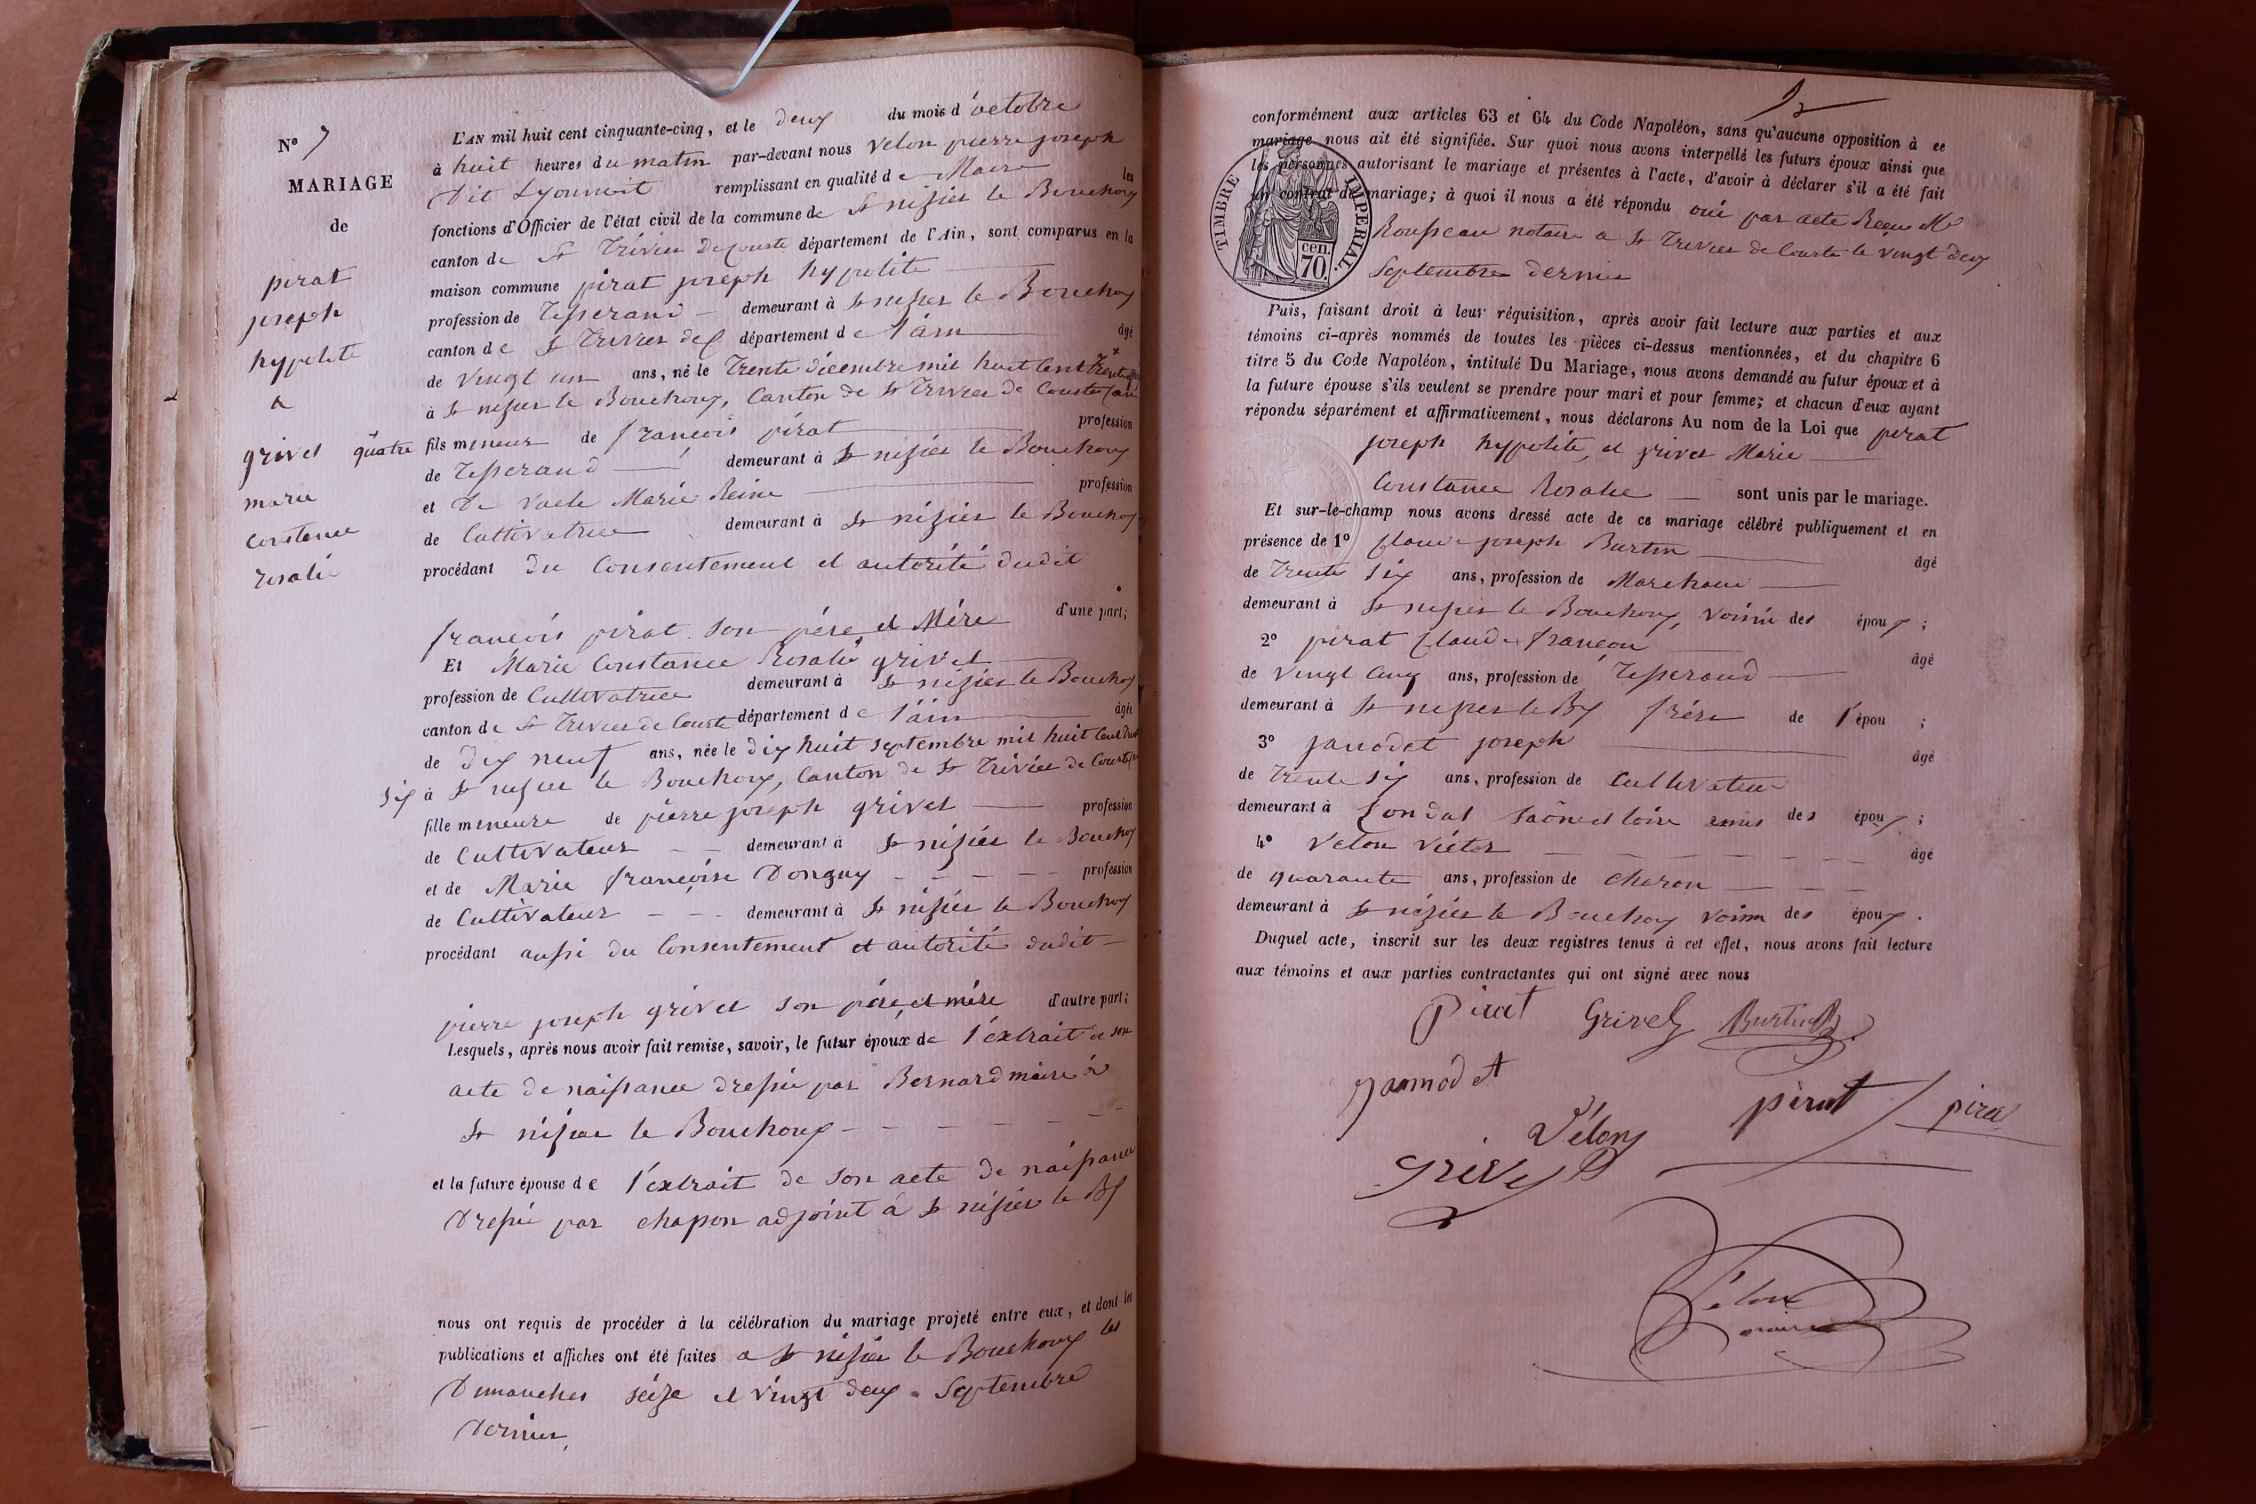 N° 7
MARIAGE
de
pirat
joseph
hypolite
&
grivet
marie
constance
rosalie
L'AN mil huit cent cinquante-cinq, et le deux du mois d'octobre
à huit heures du matin par-devant nous Velon pierre joseph
Dit Lyonnoit remplissant en qualité de Maire les
fonctions d'Officier de l'état civil de la commune de St nizier le Bouchoux
canton de St Trivier de Courte département de l'Ain, sont comparus en la
maison commune pirat joseph hypolite
profession de Tisserand demeurant à St nizier le Bouchoux
canton de St Trivier de C département de l'ain âgé
de vingt un ans, né le Trente décembre mil huit Cent Trente
quatre à St nizier le Bouchoux, Canton de St Trivier de Courte (ain
fils meneur de françois pirat profession
de Tisserand demeurant à St nizier le Bouchoux
et De Marie Reine profession
de Cultivatrice demeurant à St nizier le Bouchoux
procédant du Consentement et autorité dudit
françois pirat son père et Mère d'une part;
Et Marie Constance Rosalie grivet
profession de Cultivatrice demeurant à St nizier le Bouchoux
canton de St Trivier de Courte département de l'ain âgée
de dix neuf ans, née le dix huit septembre mil huit Cent Trente
six à St nizier le Bouchoux, Canton de St Trivier de Courte
fille meneure de pierre joseph grivet profession
de Cultivateur demeurant à St nizier le Bouchoux
et de Marie françoise Donguy profession
de Cultivateur demeurant à St nizier le Bouchoux
procédant aussi du Consentement et autorité dudit
pierre joseph grivet son père et mère d'autre part;
Lesquels, après nous avoir fait remise, savoir, le futur époux de l'extrait de son
acte de naissance dressé par Bernard maire à
St nizier le Bouchoux
et la future épouse de l'extrait de son acte de naissance
Dressé par chapon adjoint à St nizier le Bx
nous ont requis de procéder à la célébration du mariage projeté entre eux, et dont les
publications et affiches ont été faites a St nizier le Bouchoux les
Dimanches seize et vingt deux Septembre
Dernier,
conformément aux articles 63 et 64 du Code Napoléon, sans qu'aucune opposition à ce
mariage nous ait été signifiée. Sur quoi nous avons interpellé les futurs époux ainsi que
les personnes autorisant le mariage et présentes à l'acte, d'avoir à déclarer s'il a été fait
un contrat de mariage; à quoi il nous a été répondu oui par acte Recu Me
Rousseau notaire a St Trivier de Courte le vingt deux
Septembre dernier
TIMBRE IMPERIAL.
cen.
70.
Puis, faisant droit à leur réquisition, après avoir fait lecture aux parties et aux
témoins ci-après nommés de toutes les pièces ci-dessus mentionnées, et du chapitre 6
titre 5 du Code Napoléon, intitulé Du Mariage, nous avons demandé au futur époux et à
la future épouse s'ils veulent se prendre pour mari et pour femme; et chacun d'eux ayant
répondu séparément et affirmativement, nous déclarons Au nom de la Loi que pirat
joseph hypolite, et grivet Marie
Constance Rosalie sont unis par le mariage.
Et sur-le-champ nous avons dressé acte de ce mariage célébré publiquement et en
présence de 1° Claude joseph Burtin âgé
de Trente six ans, profession de Marchand
demeurant à St nizier le Bouchoux, voisin des époux;
2° pirat Claude françois âgé
de vingt cinq ans, profession de Tisserand
demeurant à St nizier le Bx frère de l'épou ;
3° janodet joseph âgé
de Trente six ans, profession de Cultivateur
demeurant à Condal saône et loire amis des époux;
4° Velon Victor âgé
de quarante ans, profession de charon
demeurant à St nizier le Bouchoux voisin des époux.
Duquel acte, inscrit sur les deux registres tenus à cet effet, nous avons fait lecture
aux témoins et aux parties contractantes qui ont signé avec nous
Pirat Grivet Burtin
janodet Vélon pirat pirat
Grivet
Vélon
maire